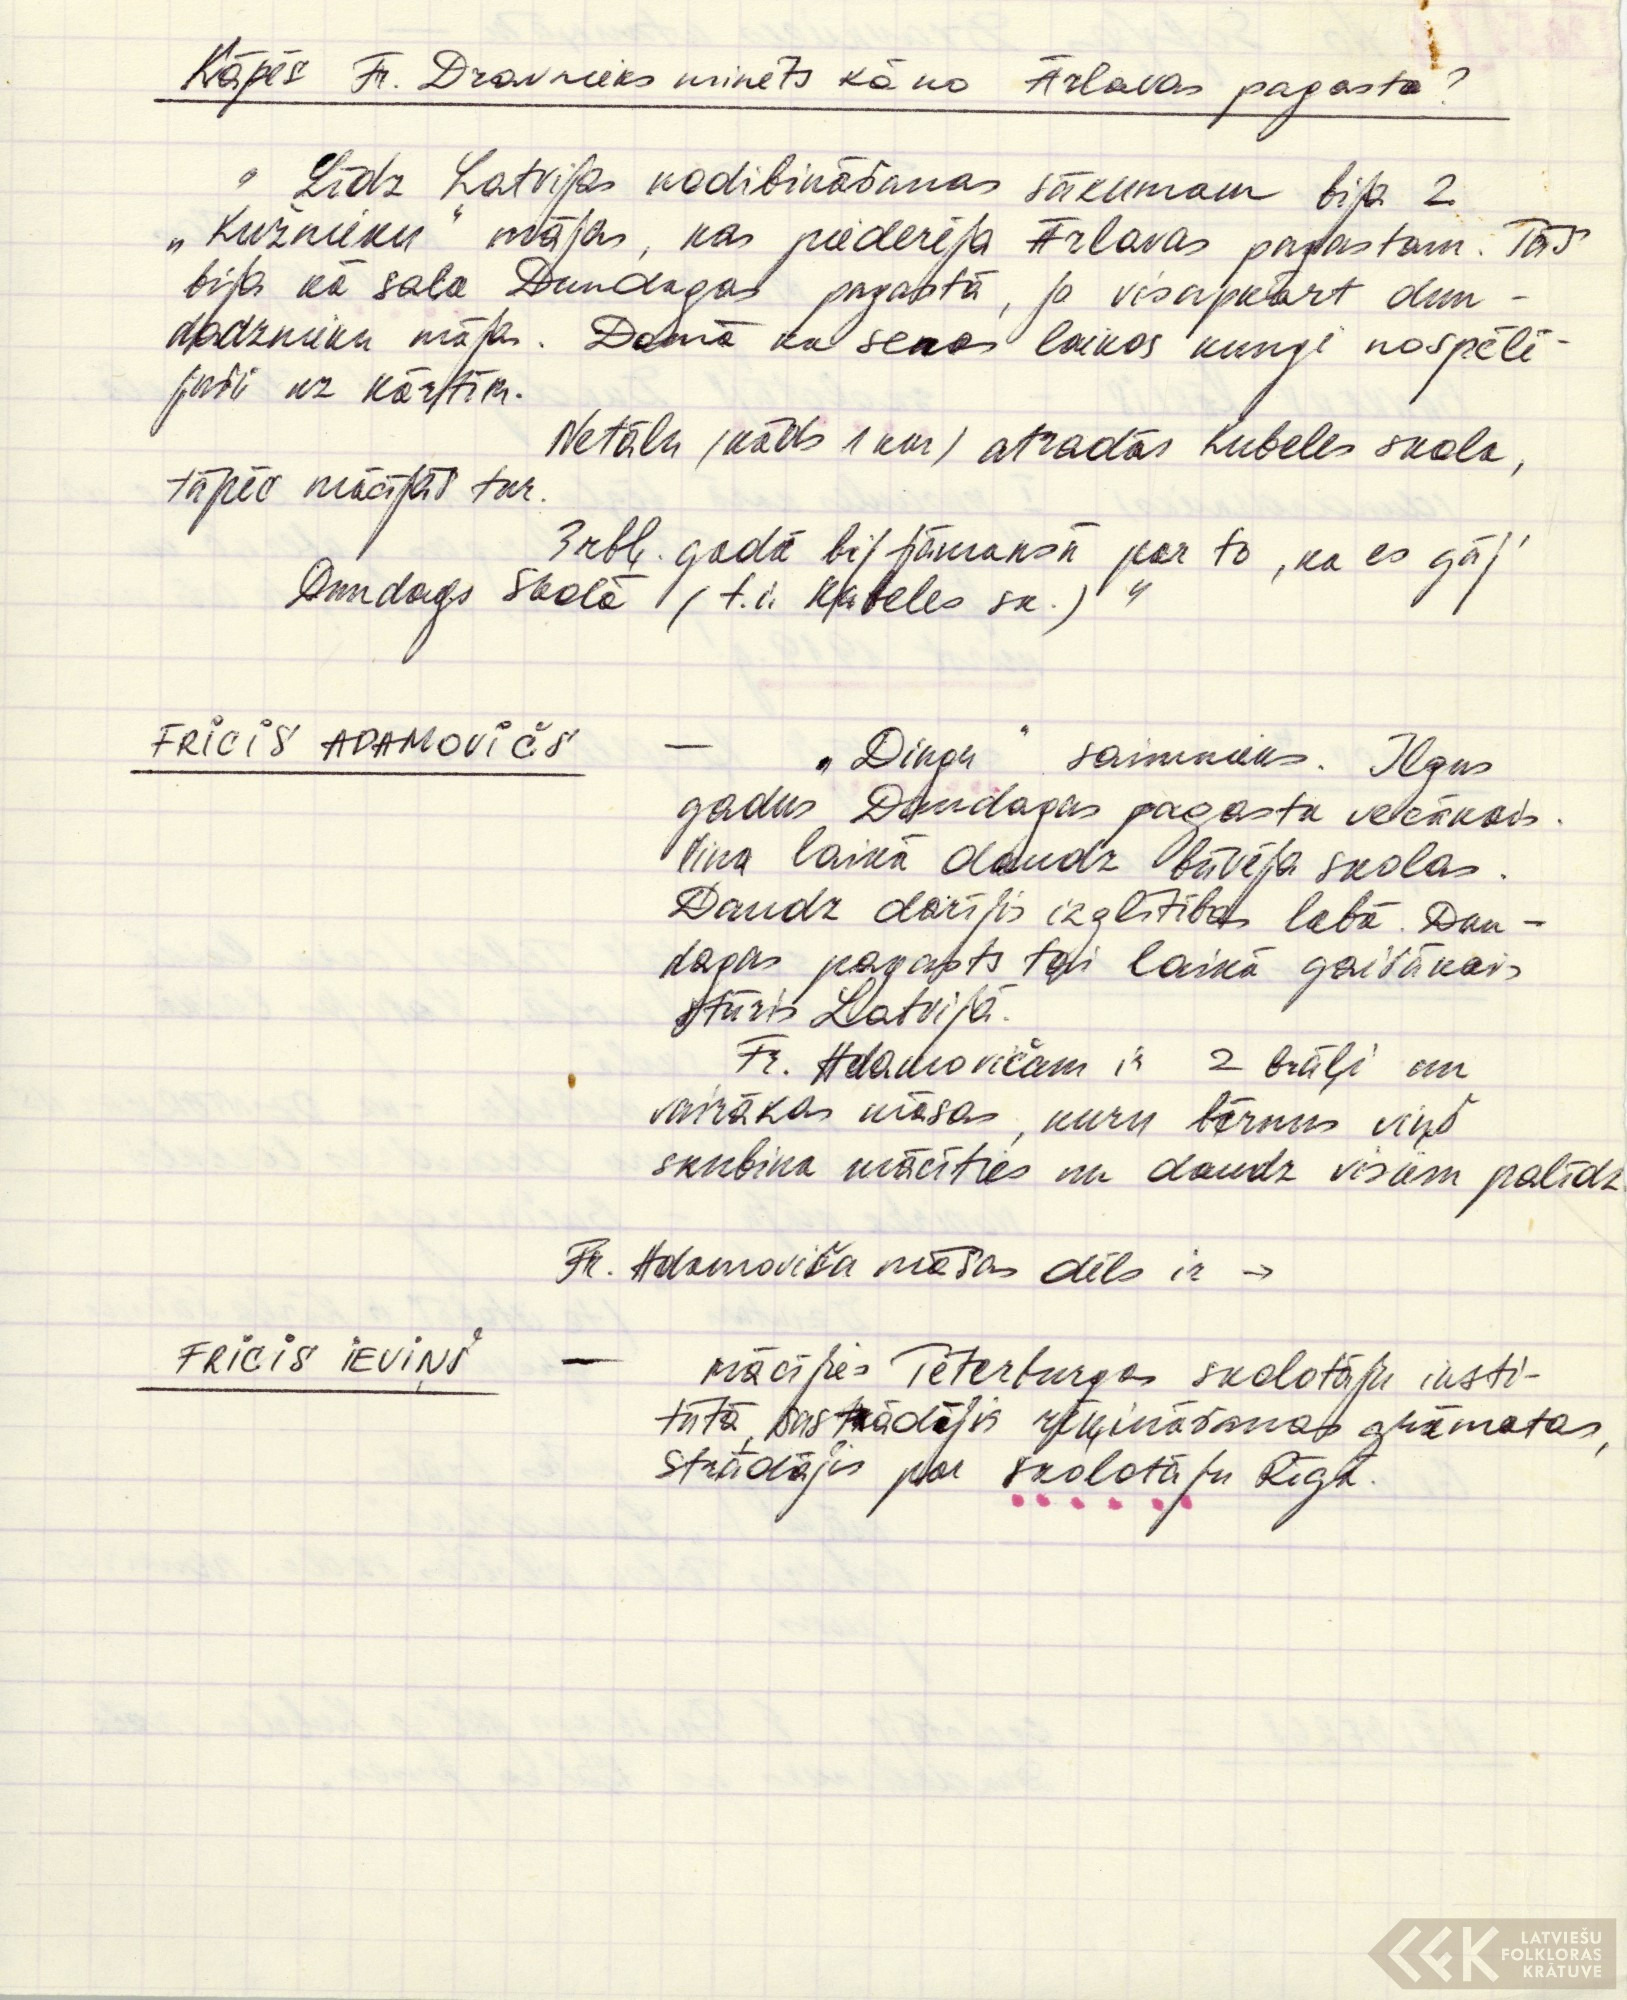 Kāpēs Fr. Dravnieks minēts kā no Ārlavas pagasta?
" Līdz Latvijas nodibināšanas sākumam bija 2
„Kužnieku" mājas, kas piederēja Ārlavas pagastam. Tās
bija kā sala Dundagas pagastā, jo visapkārt dun-
dadznieku mājas. Domā ka senos laikos kungi nospēlē-
juši uz kārtīm.
Netālu (kāds 1 km) atradās Kubeles skola,
tāpēc mācījās tur.
3 rbļ. gadā bij jāmaksā par to, ka es gāj'
Dundags skolā (t.i. Kubeles sk.) "
FRICIS ADAMOVIČS — „Dingu" saimnieks. Ilgus
gadus Dundagas pagasta vecākais.
Viņa laikā daudz būvēja skolas.
Daudz darījis izglītības labā. Dun-
dagas pagasts tai laikā gaišākais
stūris Latvijā.
Fr. Adamovičam ir 2 brāļi un
vairākas māsas, kuru bērnus viņš
skubina mācīties un daudz visiem palīdz.
Fr. Adamoviča māsas dēls ir →
FRICIS IEVIŅŠ — mācījies Pēterburgas skolotāju insti-
tūtā, sastādījis rēķināšanas grāmatas,
strādājis par skolotāju Rīgā.
LATVIEŠU
FOLKLORAS
KRĀTUVE